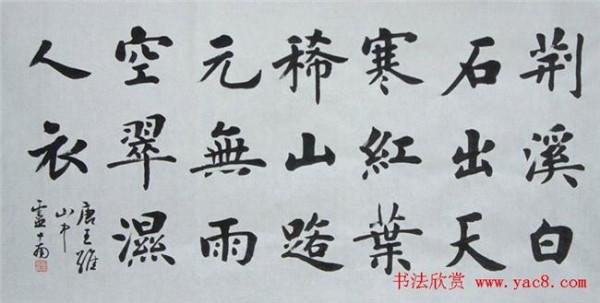 荊溪白
石出天
寒紅葉
稀山路
元無雨
空翠濕
人衣
唐王維
山中
盧中南
书法欣赏 www.yac8.com